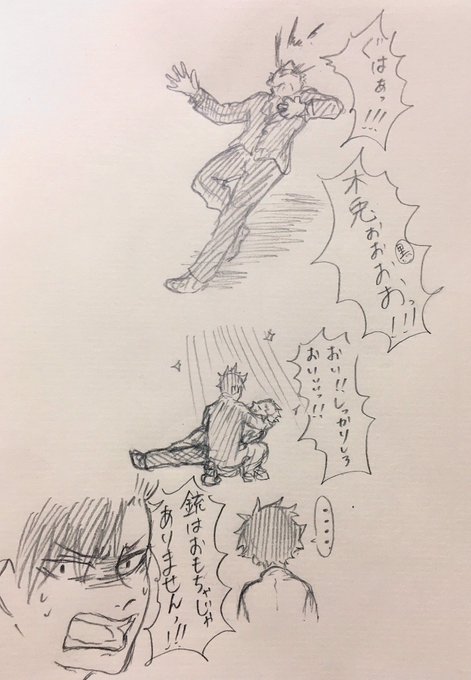 ぐはぁっ!!!
木兎ぉおおおっ!!!
黒
おい!!しっかりしろ
おいいっ!!
・・・・
銃はおもちゃじゃ
ありませんっ!!!